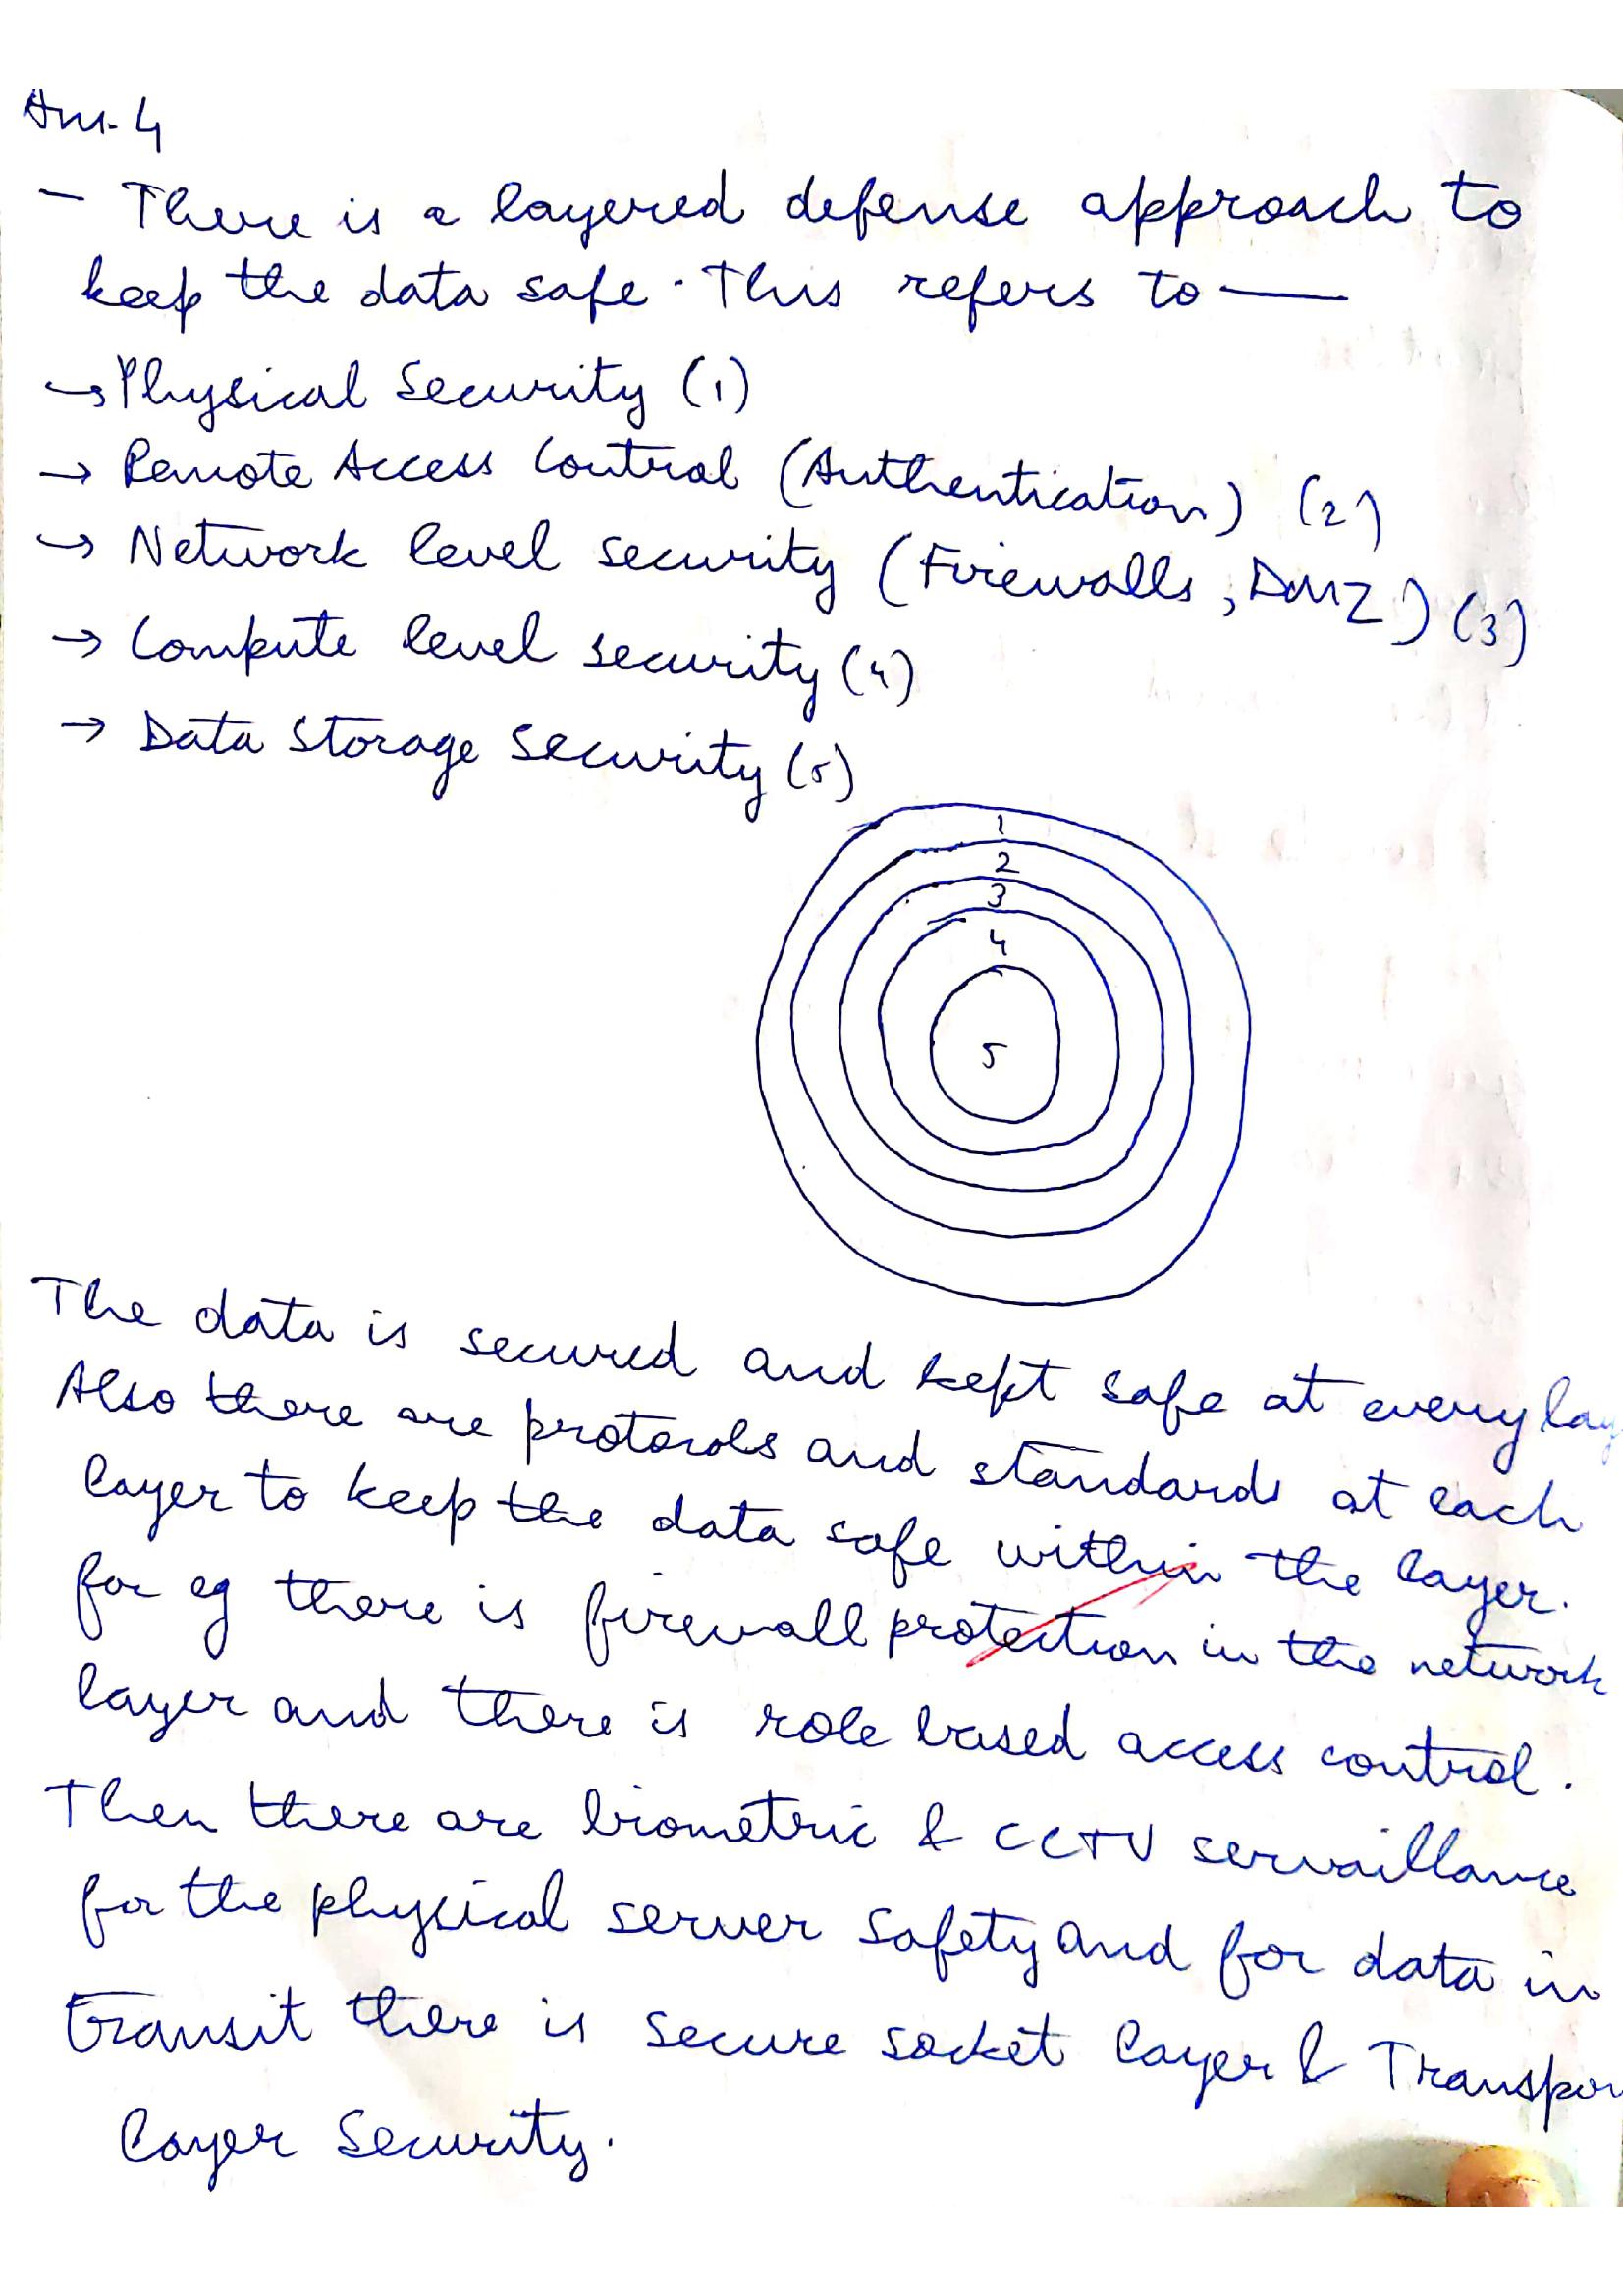 Ans. 4
- There is a layered defense approach to
keep the data safe. This refers to —
→ Physical Security (1)
→ Remote Access Control (Authentication) (2)
→ Network level security (Firewalls, DMZ) (3)
→ Compute level security (4)
→ Data Storage Security (5)
1
2
3
4
5
The data is secured and kept safe at every lay
Also there are protocols and standards at each
layer to keep the data safe within the layer.
for eg there is firewall protection in the network
layer and there is role based access control.
Then there are biometric & CCTV servaillance
for the physical server safety and for data in
transit there is secure socket layer & Transpor
layer Security.